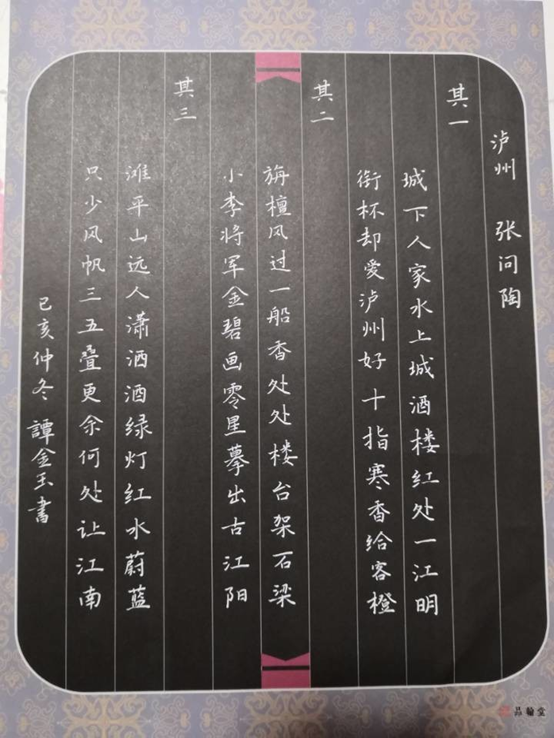 泸州 张问陶
其一
城下人家水上城酒楼红处一江明
衔杯却爱泸州好十指寒香给客橙
其二
旃檀风过一船香处处楼台架石梁
小李将军金碧画零星摹出古江阳
其三
滩平山远人潇洒酒绿灯红水蔚蓝
只少风帆三五叠更余何处让江南
己亥仲冬 譚金玉書
品翰堂